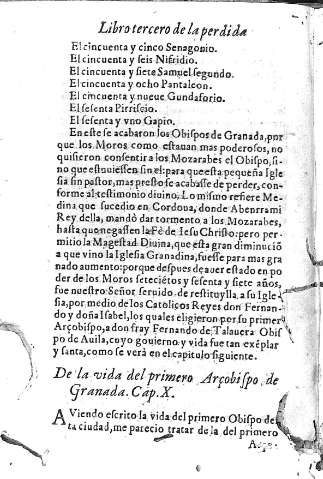 Libro tercero de la perdida
El cincuenta y cinco Senagonio.
El cincuenta y seis Nifridio.
El cincuenta y siete Samuel segundo.
El cincuenta y ocho Pantaleon.
El cincuenta y nueue Gundaforio.
El sesenta Pirricio.
El sesenta y vno Gapio.
En este se acabaron los Obispos de Granada, por
que los Moros como estauan mas poderosos, no
quisieron consentir a los Mozarabes el Obispo, si-
no que estuuiessen sin el: para que esta pequeña Igle
sia sin pastor, mas presto se acabasse de perder, con-
forme al testimonio diuino. Lo mismo refiere Me-
dina que sucedio en Cordoua, donde Abenrrami
Rey della, mandò dar tormento a los Mozarabes,
hasta que negassen la Fè de Iesu Christo: pero per-
mitio la Magestad Diuina, que esta gran diminuciõ
a que vino la Iglesia Granadina, fuesse para mas gra
nado aumento: porque despues de auer estado en po
der de los Moros setecietos y sesenta y siete años,
fue nuestro Señor seruido de restituylla, a su Igle-
sia, por medio de los Catolicos Reyes don Fernan-
do y doña Isabel, los quales eligieron por su primer
Arçobispo, a don fray Fernando de Talauera Obis
po de Auila, cuyo gouierno y vida fue tan exẽplar
y santa, como se verà en el capitulo siguiente.
De la vida del primero Arçobispo de
Granada. Cap. X.
AViendo escrito la vida del primero Obispo des
ta ciudad, me parecio tratar de la del primero